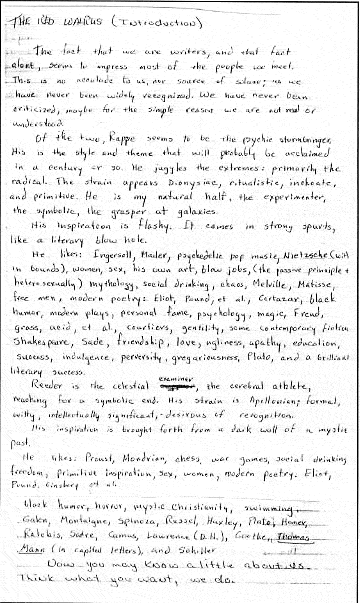 THE RED WALRUS (Introduction)
The fact that we are writers, and that fact
alone, seems to impress most of the people we meet.
This is no accolade to us, nor source of solace; as we
have never been widely recognized. We have never been
criticized, maybe for the simple reason we are not read or
understood.
Of the two, Rappe seems to be the psychic stormbringer.
His is the style and theme that will probably be acclaimed
in a century or so. He juggles the extremes: primarily the
radical. The strain appears Dionysiac, ritualistic, inchoate,
and primitive. He is my natural half, the experimenter,
the symbolic, the grasper at galaxies.
His inspiration is flashy. It comes in strong spurts,
like a literary blow hole.
He likes: Ingersoll, Mailer, psychedelic pop music, Nietzsche (with
in bounds), women, sex, his own art, blow jobs, (the passive principle &
heterosexually) mythology, social drinking, chaos, Melville, Matisse,
free men, modern poetry: Eliot, Pound, et al., Cortazar, black
humor, modern plays, personal fame, psychology, magic, Freud,
grass, acid, et al., courtiers, gentility, some contemporary fiction
Shakespeare, Sade, friendship, love, ugliness, apathy, education,
success, indulgence, perversity, gregariousness, Plato, and a brilliant
literary success.
Reeder is the celestial examiner, the cerebral athlete,
reaching for a symbolic end. His strain is Apollonian; formal,
witty, intellectually significant, desirous of recognition.
His inspiration is brought forth from a dark wall of a mystic
past.
He likes: Proust, Mondrian, chess, war games, social drinking
freedom, primitive inspiration, sex, women, modern poetry: Eliot,
Pound, Ginsberg et al.
black humor, horror, mystic Christianity, swimming,
Galen, Montaigne, Spinoza, Russel, Huxley, Plato, Homer,
Rabelais, Sartre, Camus, Lawrence (D.H.), Goethe, Thomas
Mann (in capital letters), and Schiller
Now you may know a little about us.
Think what you want, we do.